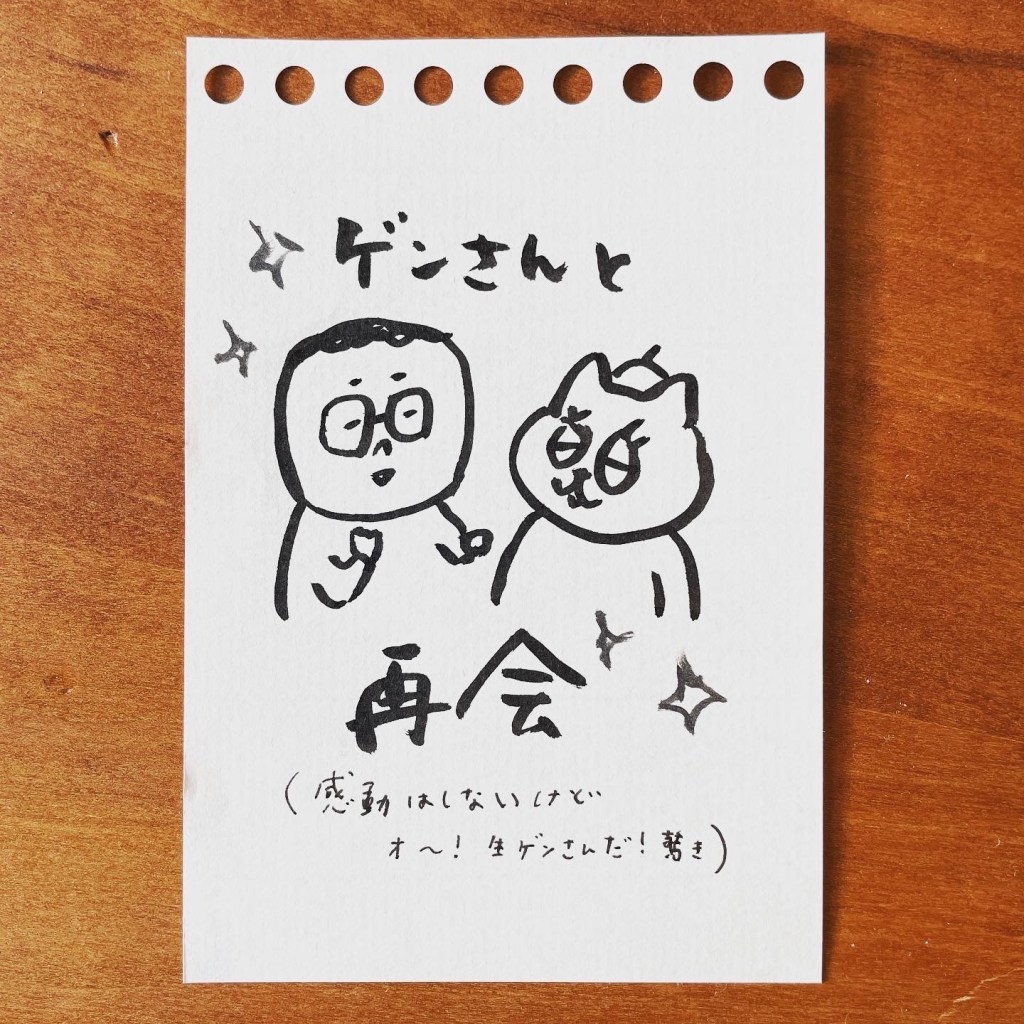 ゲンさんと
再会
(感動はしないけど
オ〜!生ゲンさんだ!驚き)